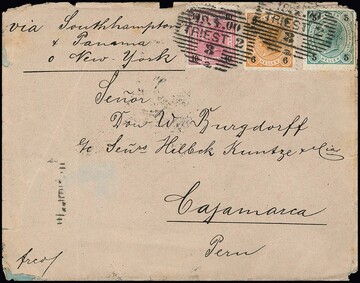 via Southhampton
& Panama
o New-York
TRIEST 2
TRIEST 2
6
6
5
Señor
Don W. Burgdorff
c/o Señrs Hilbck Kuntze & Cia
Cajamarca
Peru